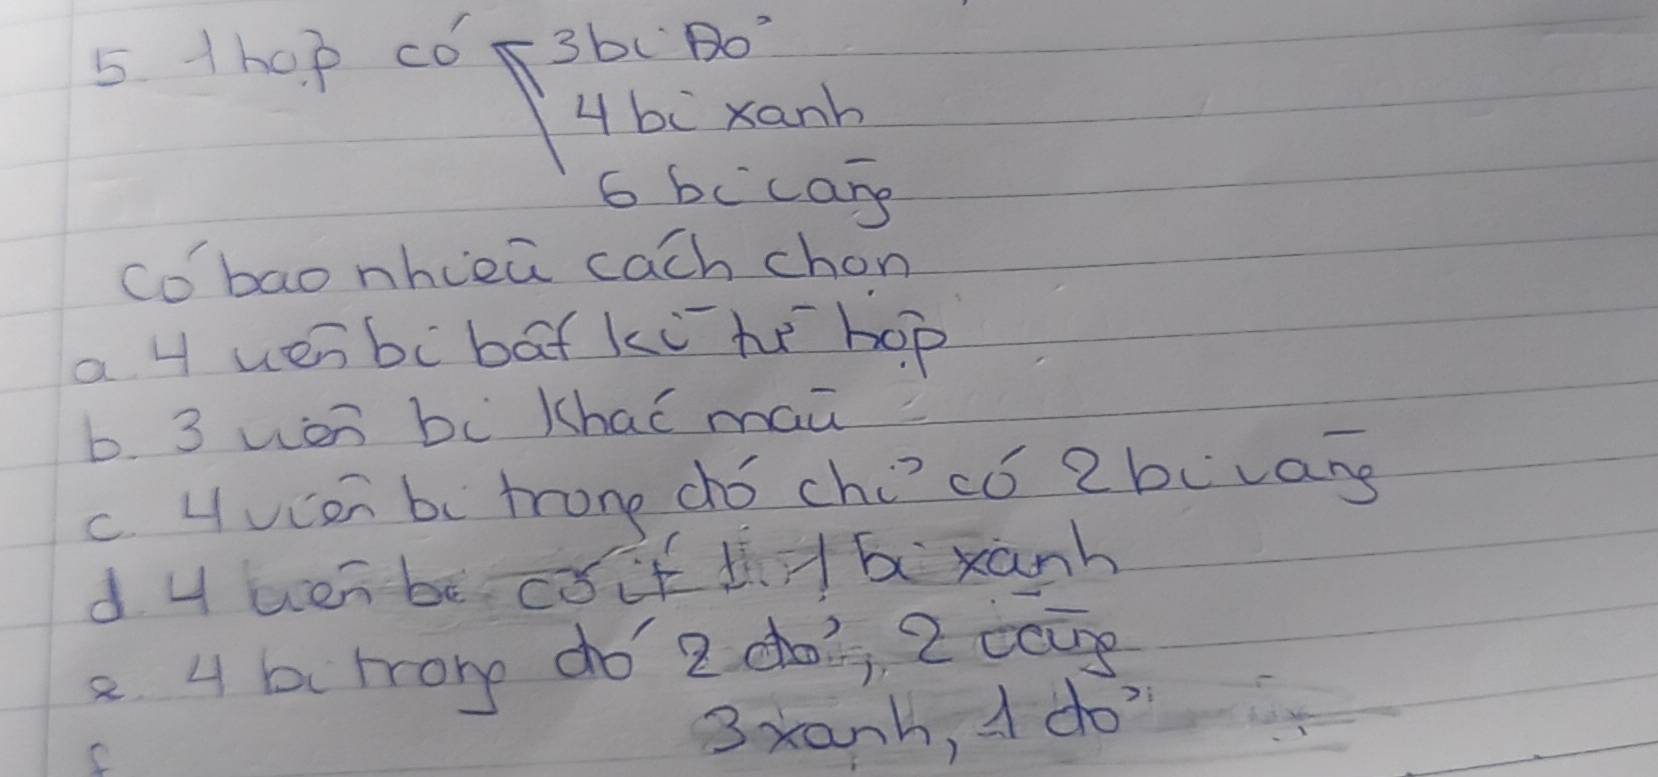 5. 1 hợp có 3 bi Đỏ
4 bi xanh
6 bi vàng
Có bao nhiêu cách chọn
a. 4 viên bi bất kì từ hộp
b. 3 viên bi khác màu
c. 4 viên bi trong đó chỉ có 2 bi vàng
d. 4 viên bi có ít 1 bi xanh
e. 4 bi trong đó 2 đỏ, 2 vàng
3 xanh, 1 đỏ
f